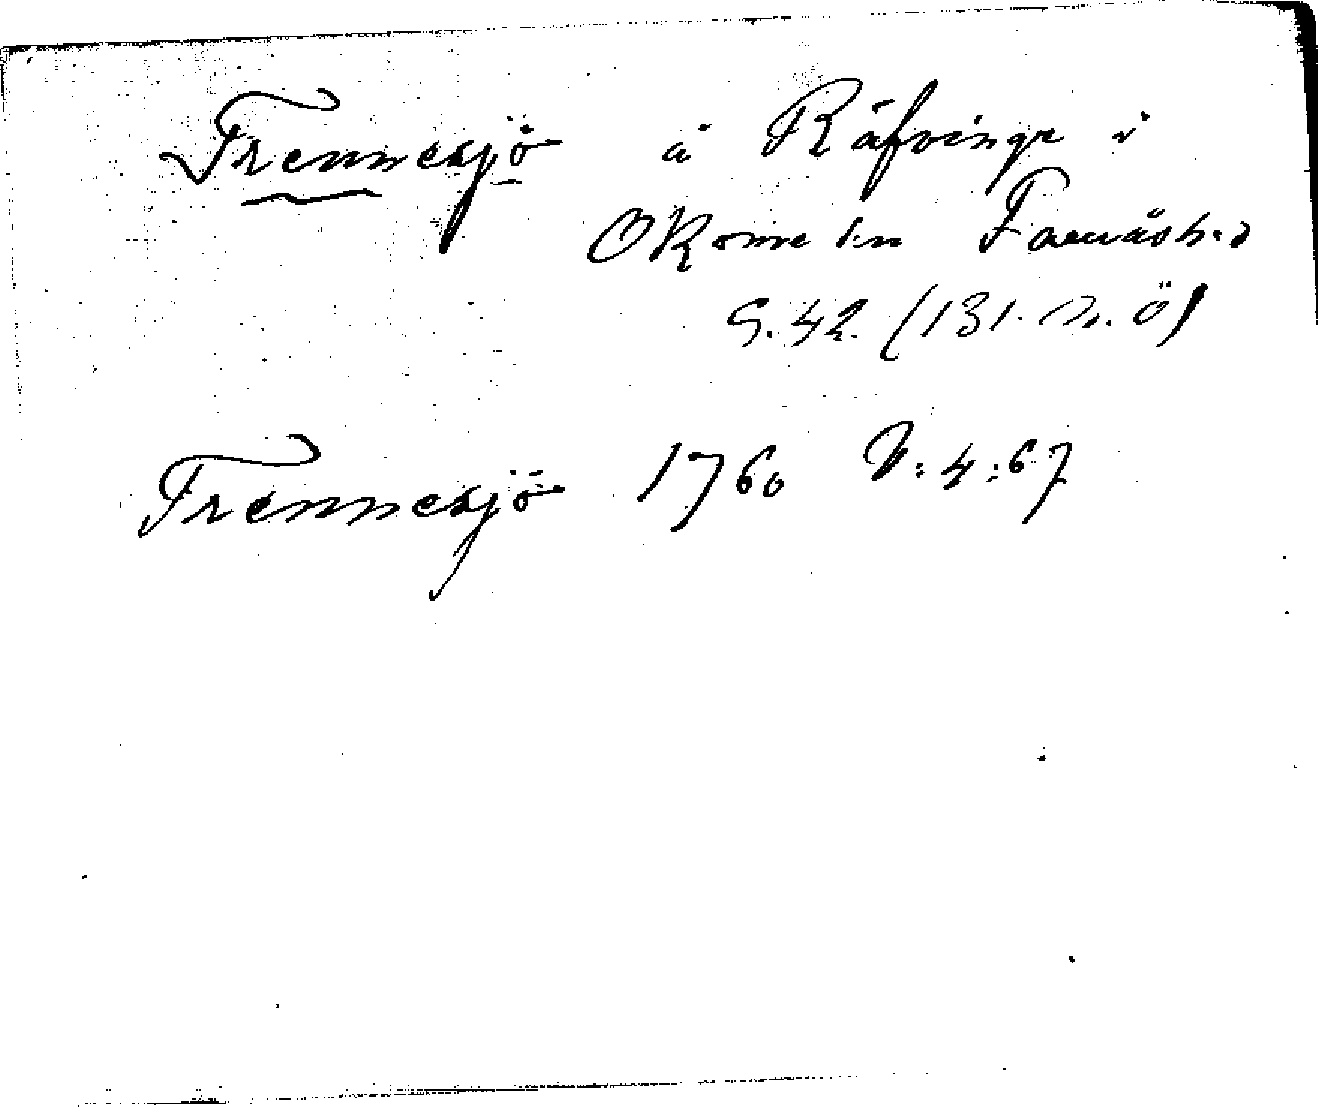 Frennesjö å Räfvinge i
Okome sn Faurås h.d
G.42. (131. n. ö)
Frennesjö 1760 V:4:67